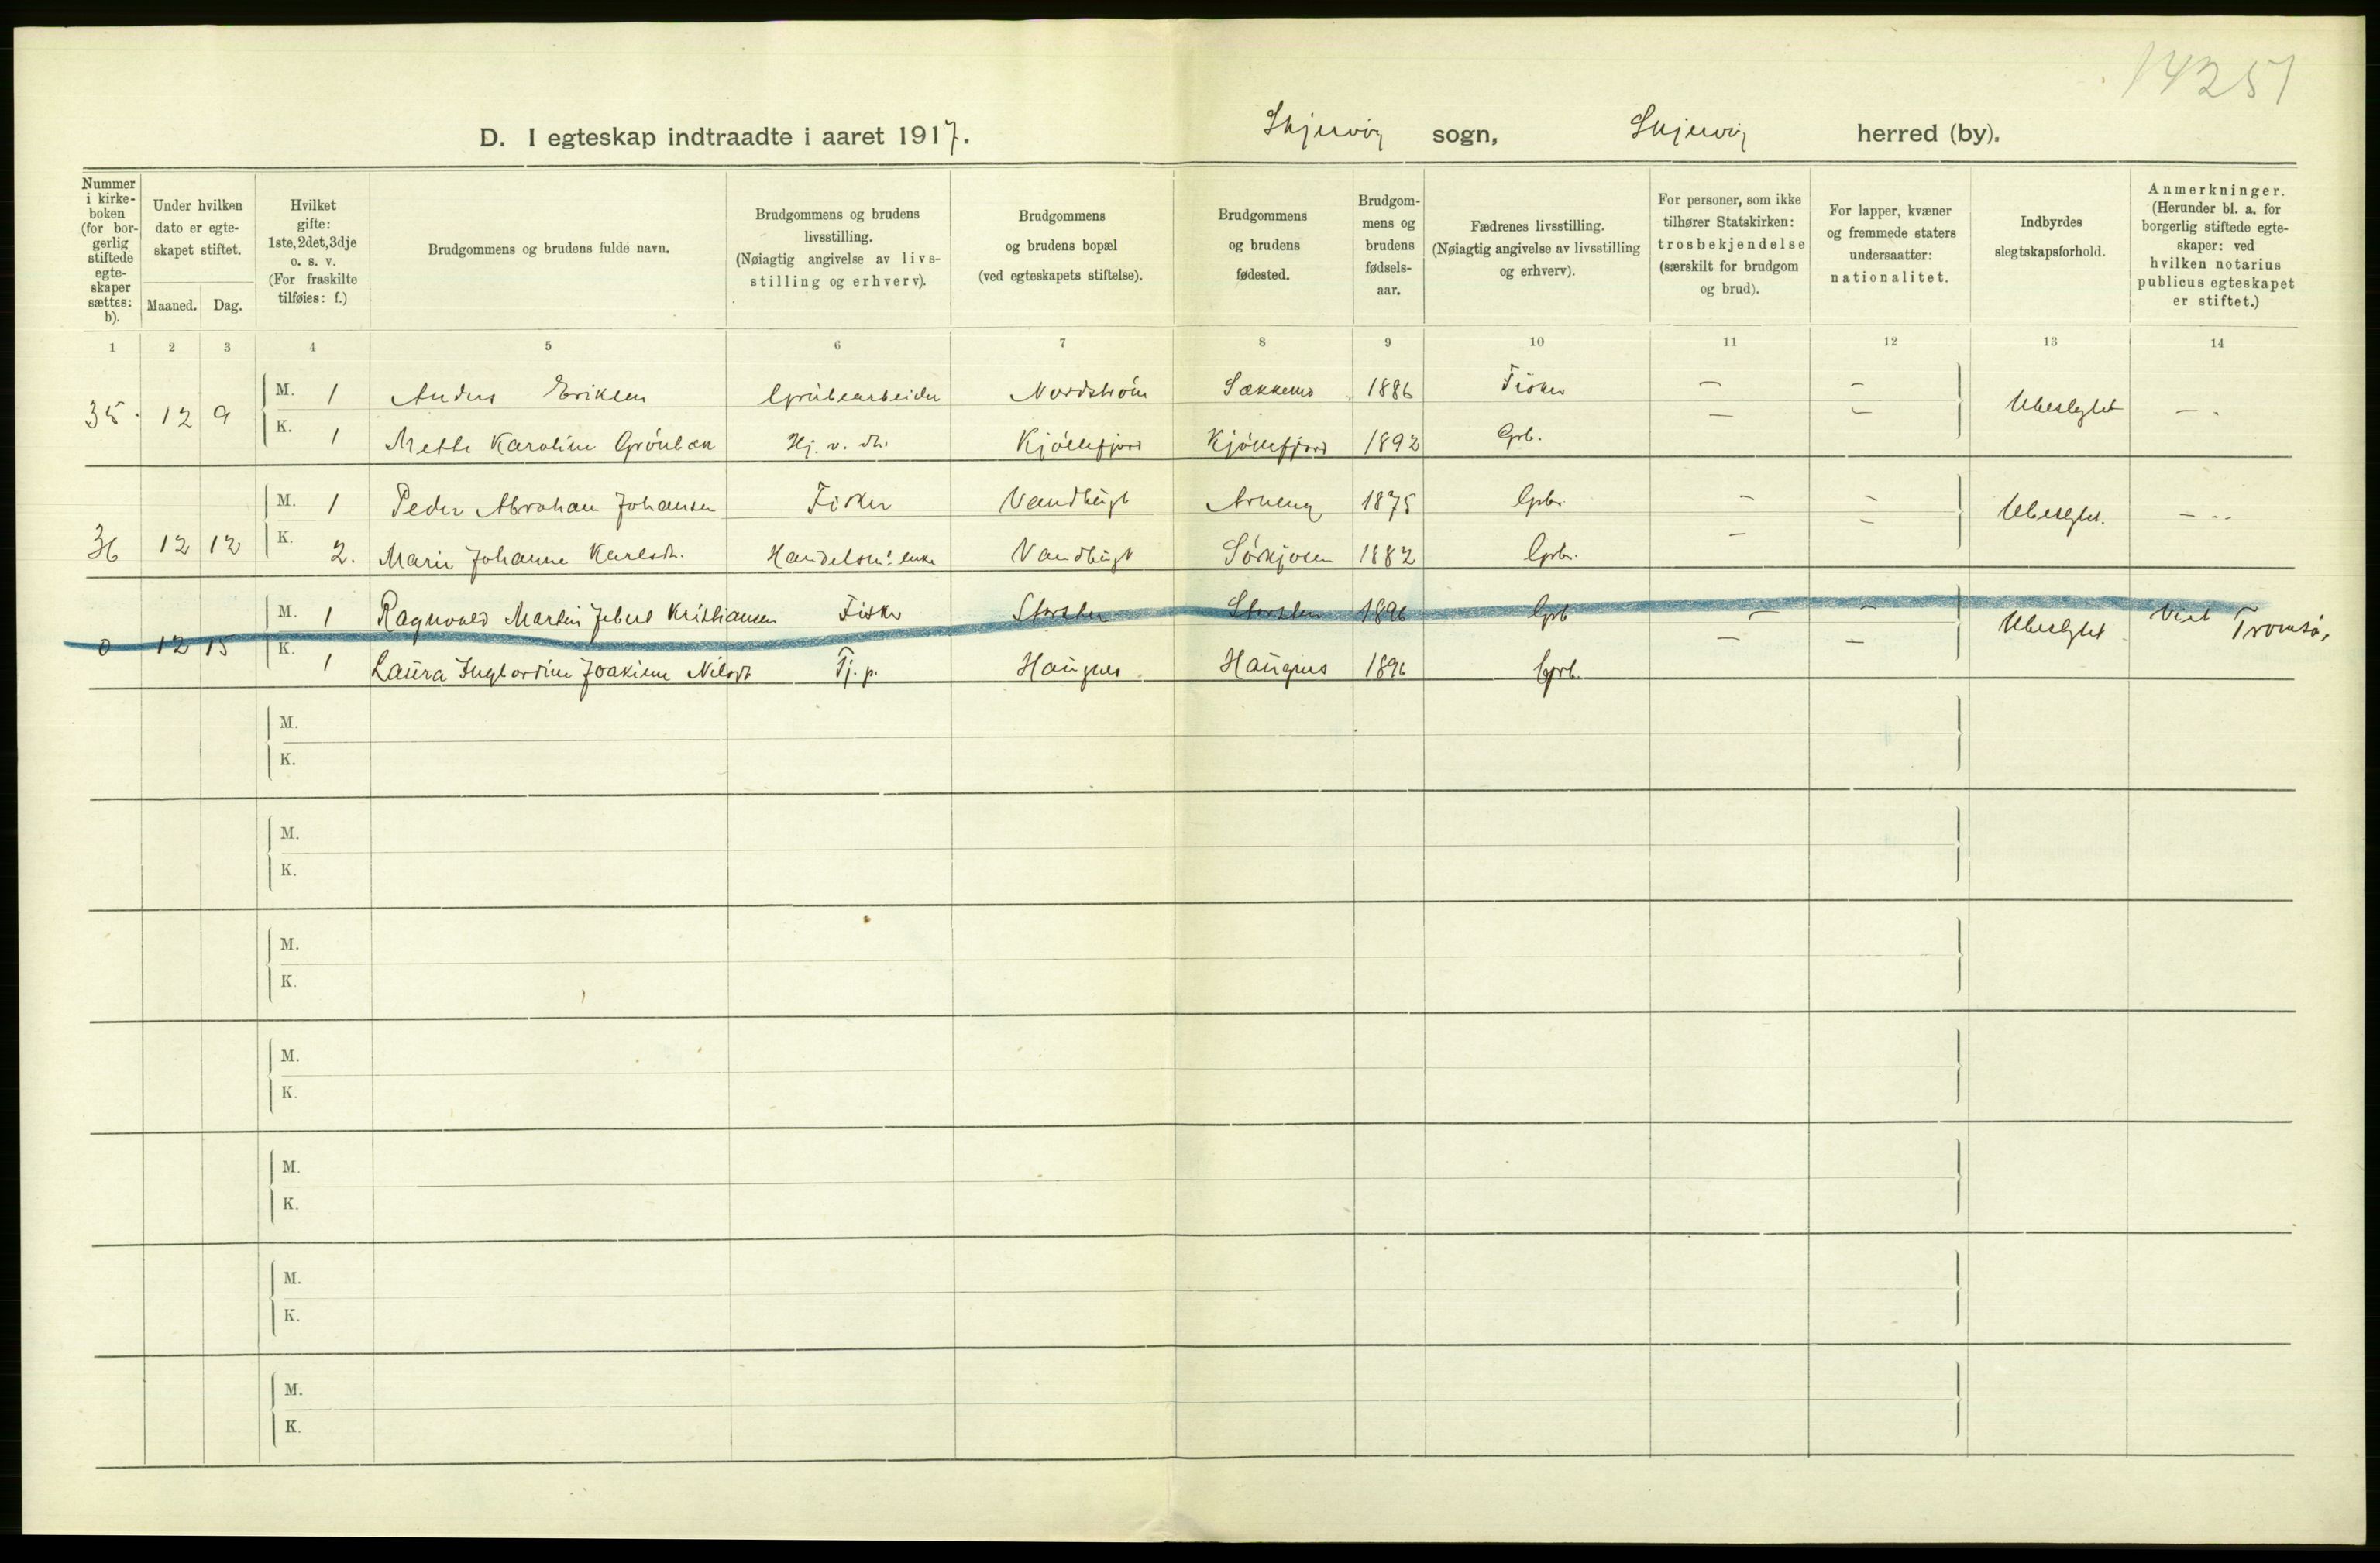 14251
D. I egteskap indtraadte i aaret 1917. Skjervøy sogn, Skjervøy herred (by).
Nummer i kirke-boken (for bor-gerlig stiftede egte-skaper sættes: b).
Under hvilken dato er egte-skapet stiftet.
Maaned. Dag.
Hvilket gifte: 1ste, 2det, 3dje o. s. v. (For fraskilte tilføies: f.)
Brudgommens og brudens fulde navn.
Brudgommens og brudens livsstilling. (Nøiagtig angivelse av livs-stilling og erhverv).
Brudgommens og brudens bopæl (ved egteskapets stiftelse).
Brudgommens og brudens fødested.
Brudgom-mens og brudens fødsels-aar.
Fædrenes livsstilling. (Nøiagtig angivelse av livsstilling og erhverv).
For personer, som ikke tilhører Statskirken: trosbekjendelse (særskilt for brudgom og brud).
For lapper, kvæner og fremmede staters undersaatter: nationalitet.
Indbyrdes slegtskapsforhold.
Anmerkninger. (Herunder bl. a. for borgerlig stiftede egte-skaper: ved hvilken notarius publicus egteskapet er stiftet.)
1 2 3 4 5 6 7 8 9 10 11 12 13 14
35. 12 9 M. 1 Anders Eriksen Grubearbeider Nordström Sækkemo 1886 Fisker — — Ubeslegtet — .
K. 1 Mette Karoline Grönbæk Hj. v. dtr. Kjöllefjord Kjöllefjord 1892 Grb. — —
36 12 12 M. 1 Peder Abraham Johansen Fisker Vandbugt Arneng 1875 Grbr. — — Ubeslegtet. — ..
K. 2. Marie Johanne Karlsdtr. Handelsm: enke Vandbugt Sörkjosen 1882 Gbr. — —
0 12 15 M. 1 Ragnvald Martin Kristiansen Fisker Storsten Storsten 1896 Grb — — Ubeslegtet Viet Tromsö,
K. 1 Laura Ingbordine Joakime Nilsdt Tj. p. Haugnes Haugnes 1896 Grb. — —
M.
K.
M.
K.
M.
K.
M.
K.
M.
K.
M.
K.
M.
K.